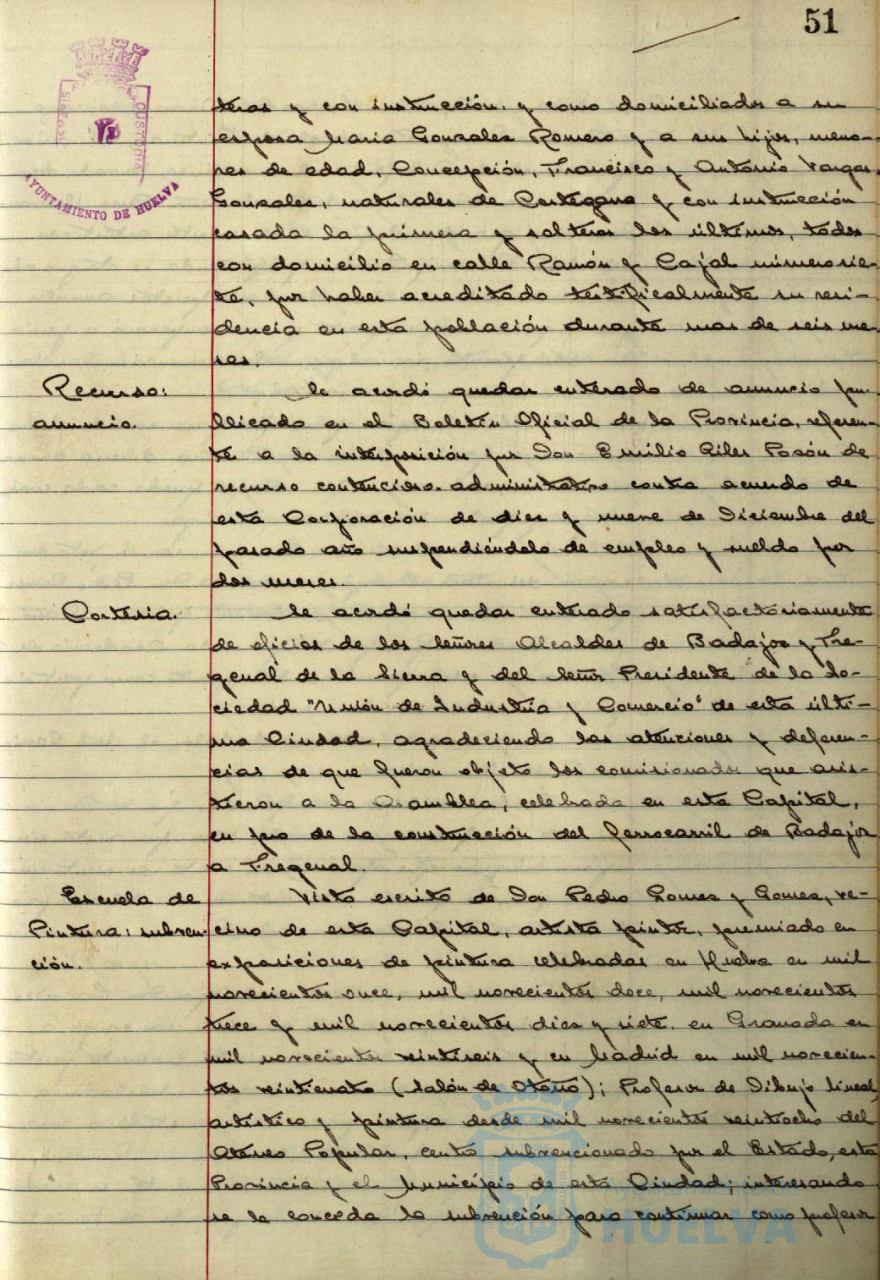 51
CUSTODIA
AYUNTAMIENTO DE HUELVA
teros y con instrucción. y como domiciliados a su
esposa Maria Gonzalez Romero y a sus hijos, meno-
res de edad, Concepción, Francisco y Antonio Vargas
Gonzales, naturales de Cortegana y con instrucción
casada la primera y solteros los últimos, todos
con domicilio en calle Ramón y Cajal número sie-
te, por haber acreditado testificalmente su resi-
dencia en esta población durante mas de seis me-
ses.
Recurso:
anuncio.
Se acordó quedar enterado de anuncio pu-
blicado en el Boletin Oficial de la Provincia, referen-
te a la interposición por Don Emilio Giles Pasón de
recurso contencioso-administrativo contra acuerdo de
esta Corporación de dies y nueve de Diciembre del
pasado año suspendiéndolo de empleo y sueldo por
dos meses.
Cortesia.
Se acordó quedar enterado satisfactoriamente
de oficios de los Señores Alcaldes de Badajoz y Fre-
genal de la Sierra y del Señor Presidente de la So-
ciedad "Unión de Industria y Comercio" de esta últi-
ma Ciudad, agradeciendo las atenciones y deferen-
cias de que fueron objeto los comisionados que asis-
tieron a la Asamblea, celebrada en esta Capital,
en pro de la construcción del ferrocarril de Badajoz
a Fregenal.
Escuela de
Pintura: subven-
ción.
Visto escrito de Don Pedro Gomez y Gomez, ve-
cino de esta Capital, artista pintor, premiado en
exposiciones de pintura celebradas en Huelva en mil
novecientos once, mil novecientos doce, mil novecientos
trece y mil novecientos dies y siete. en Granada en
mil novecientos veintiseis y en Madrid en mil novecien-
tos veinticuatro (Salón de Otoño); Profesor de Dibujo lineal,
artístico y pintura desde mil novecientos veintiocho del
Ateneo Popular, centro subvencionado por el Estado, esta
Provincia y el Municipio de esta Ciudad; interesando
se le conceda la subvención para continuar como profesor
HUELVA